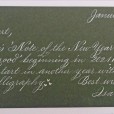 Janua
is Note of the New Year
good beginning in 2021
start in another year with
lligraphy
Best w